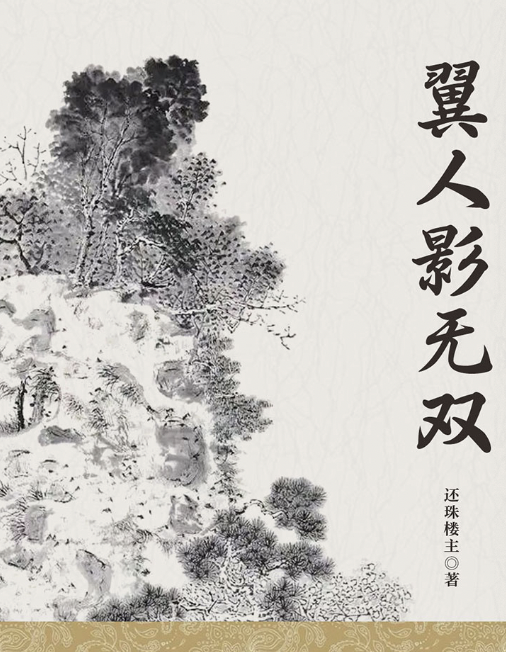 翼人影无双
还珠楼主◎著